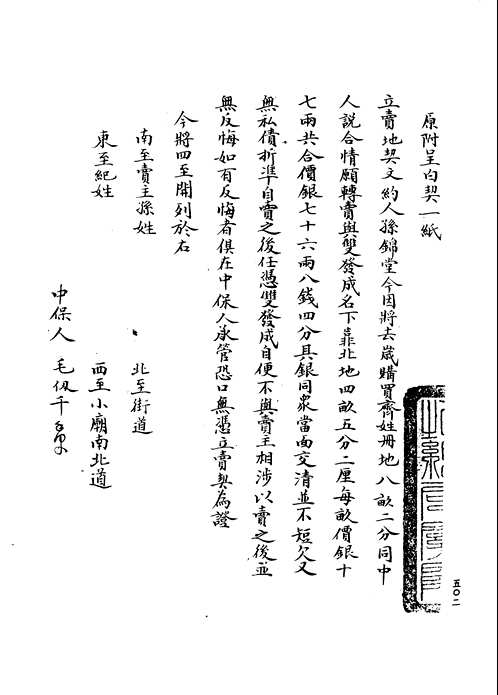 原附呈白契一紙
立賣地契文約人孫錦堂今因將去歲購買齊姓册地八畝二分同中
人説合情願轉賣與雙發成名下靠北地四畝五分二厘每畝價銀十
七兩共合價銀七十六兩八錢四分具銀同衆當面交清並不短欠又
無私債折準自賣之後任憑雙發成自便不與賣主相涉以賣之後並
無反悔如有反悔者俱在中保人承管恐口無憑立賣契為證
今將四至開列於右
南至賣主孫姓 北至街道
東至紀姓 西至小廟南北道
中保人 毛仭千
五〇二